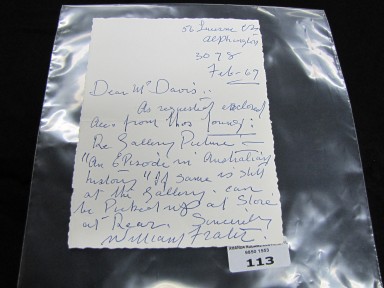 Alphington
3078
Feb-67
Dear Mr Davis..
As requested enclosed
acc. from
Re Gallery Picture -
"An Episode in Australian
history" If same is still
at the Gallery. can
be Picked up at Store
at Rear. Sincerely
William Frater.
113